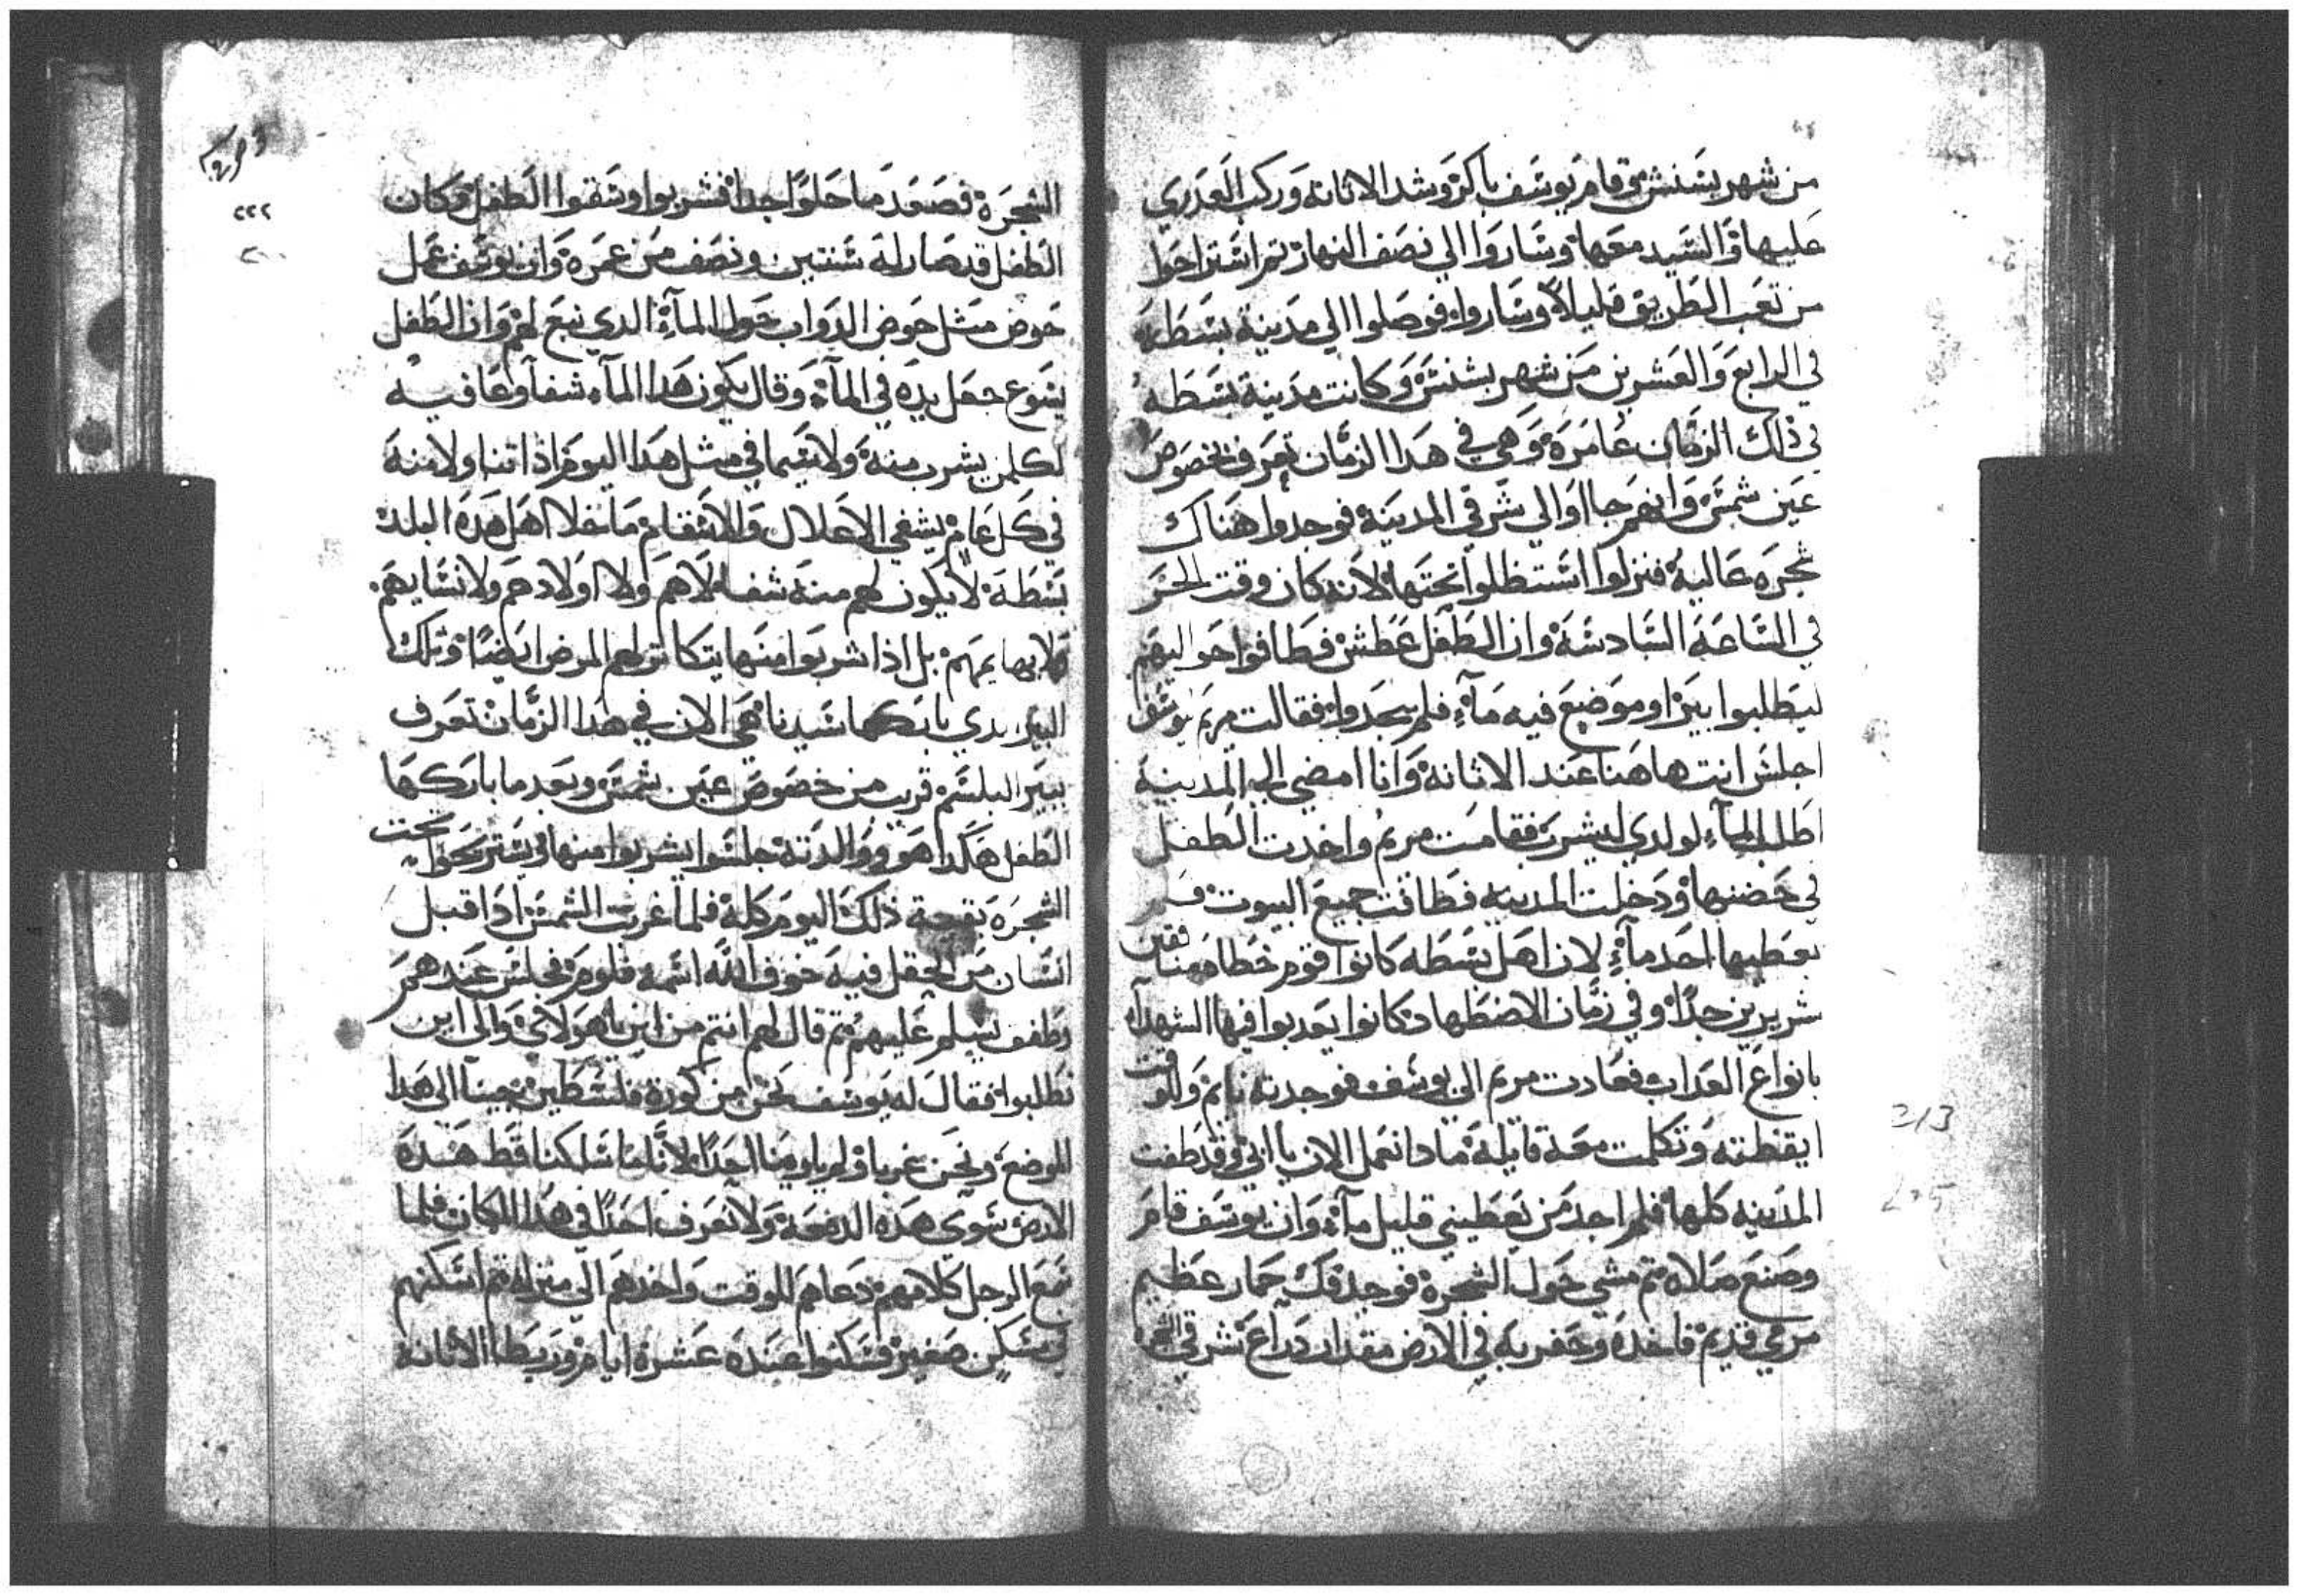 من شهر بشنش وقام يوسف باكر وشد الاتانه وركب العدري
عليها والسيد معها وساروا الي نصف النهار ثم استراحوا
من تعب الطريق قليلاً وساروا فوصلوا الي مدينة بسطه
في الرابع والعشرين من شهر بشنش وكانت مدينة بسطه
في ذلك الزمان عامره وهي في هذا الزمان تعرف بخصوص
عين شمس وانفرجا اوالي شرقي المدينة فوجدوا هناك
شجره عالية فنزلوا استظلوا تحتها لانه كان وقت الحر
في الساعة السادسة وان الطفل عطش فطافوا حواليهم
ليطلبوا بير او موضع فيه ماء فلم يجدوا فقالت مريم ليوسف
اجلس انت هاهنا عند الاتانة وانا امضي الي المدينة
اطلب الماء لولدي ليشرب فقامت مريم واخدت الطفل
في حضنها ودخلت المدينه فطافت جميع البيوت فلم
يعطيها احد ماء لان اهل بسطه كانوا قوم خطاه منافقين
شريرين جداً وفي زمان الاضطهاد كانوا يعدبوا فيها الشهداء
بانواع العداب فعادت مريم الي يوسف فوجدته نايم وللوقت
ايقظته وتكلمت معه قايلة مادا نعمل الان يا ابي وقد طفت
المدينه كلها فلم اجد من يعطيني قليل ماء وان يوسف قام
وصنع صلاه ثم مشي حول الشجرة فوجد فك حمار عظيم
مرمي قديم فاخده وحفر به في الارض مقدار دراع شرقي الشجره
٢١٣
٢٠٥
٢٢٢
٢٠٠
الشجرة فصعد ما حلواً جدا فشربوا وسقوا الطفل وكان
الطفل قد صار له سنتين ونصف من عمره وان يوسف عمل
حوض متل حوض الدواب حول الماء الدي نبع لهم وان الطفل
يسوع جعل يده في الماء وقال يكون هدا الماء شفا وعافيه
لكلمن يشرب منه ولاسيما في مثل هدا اليوم اذا تناولا منه
في كل عام يشفي الاعلال والاسقام ما خلا اهل هده البلد
بسطة لا يكون لهم منه شفا لا هم ولا اولادهم ولا نسايهم
ولا بهايمهم بل اذا شربوا منها يتكاتر لهم المرض ايضاً وتلك
البير الدي باركها سيدنا هي الان في هدا الزمان تعرف
ببير البلسم قرب من خصوص عين شمس وبعد ما باركها
الطفل هكدا هو ووالدته جلسوا يشربوا منها ويستريحوا تحت
الشجره بقية ذلك اليوم كله فلما غربت الشمس ادا قبل
انسان من الحقل فيه خوف الله اسمه قلوم فجلس عندهم
وطفف يسلم عليهم ثم قال لهم انتم من اين يا هولاي والي اين
تطلبوا فقال له يوسف نحن من كورة فلسطين جينا الي هدا
الموضع ونحن غربا ولم ياوينا احداً لاننا ما سلكنا قط هده
الارض سوي هده الدفعة ولا نعرف احداً في هدا المكان فلما
سمع الرجل كلامهم دعاهم للوقت واخدهم الي منزله ثم اسكنهم
في مسكن صغير فسكنوا عنده عشرة ايام وربطا الاتانة